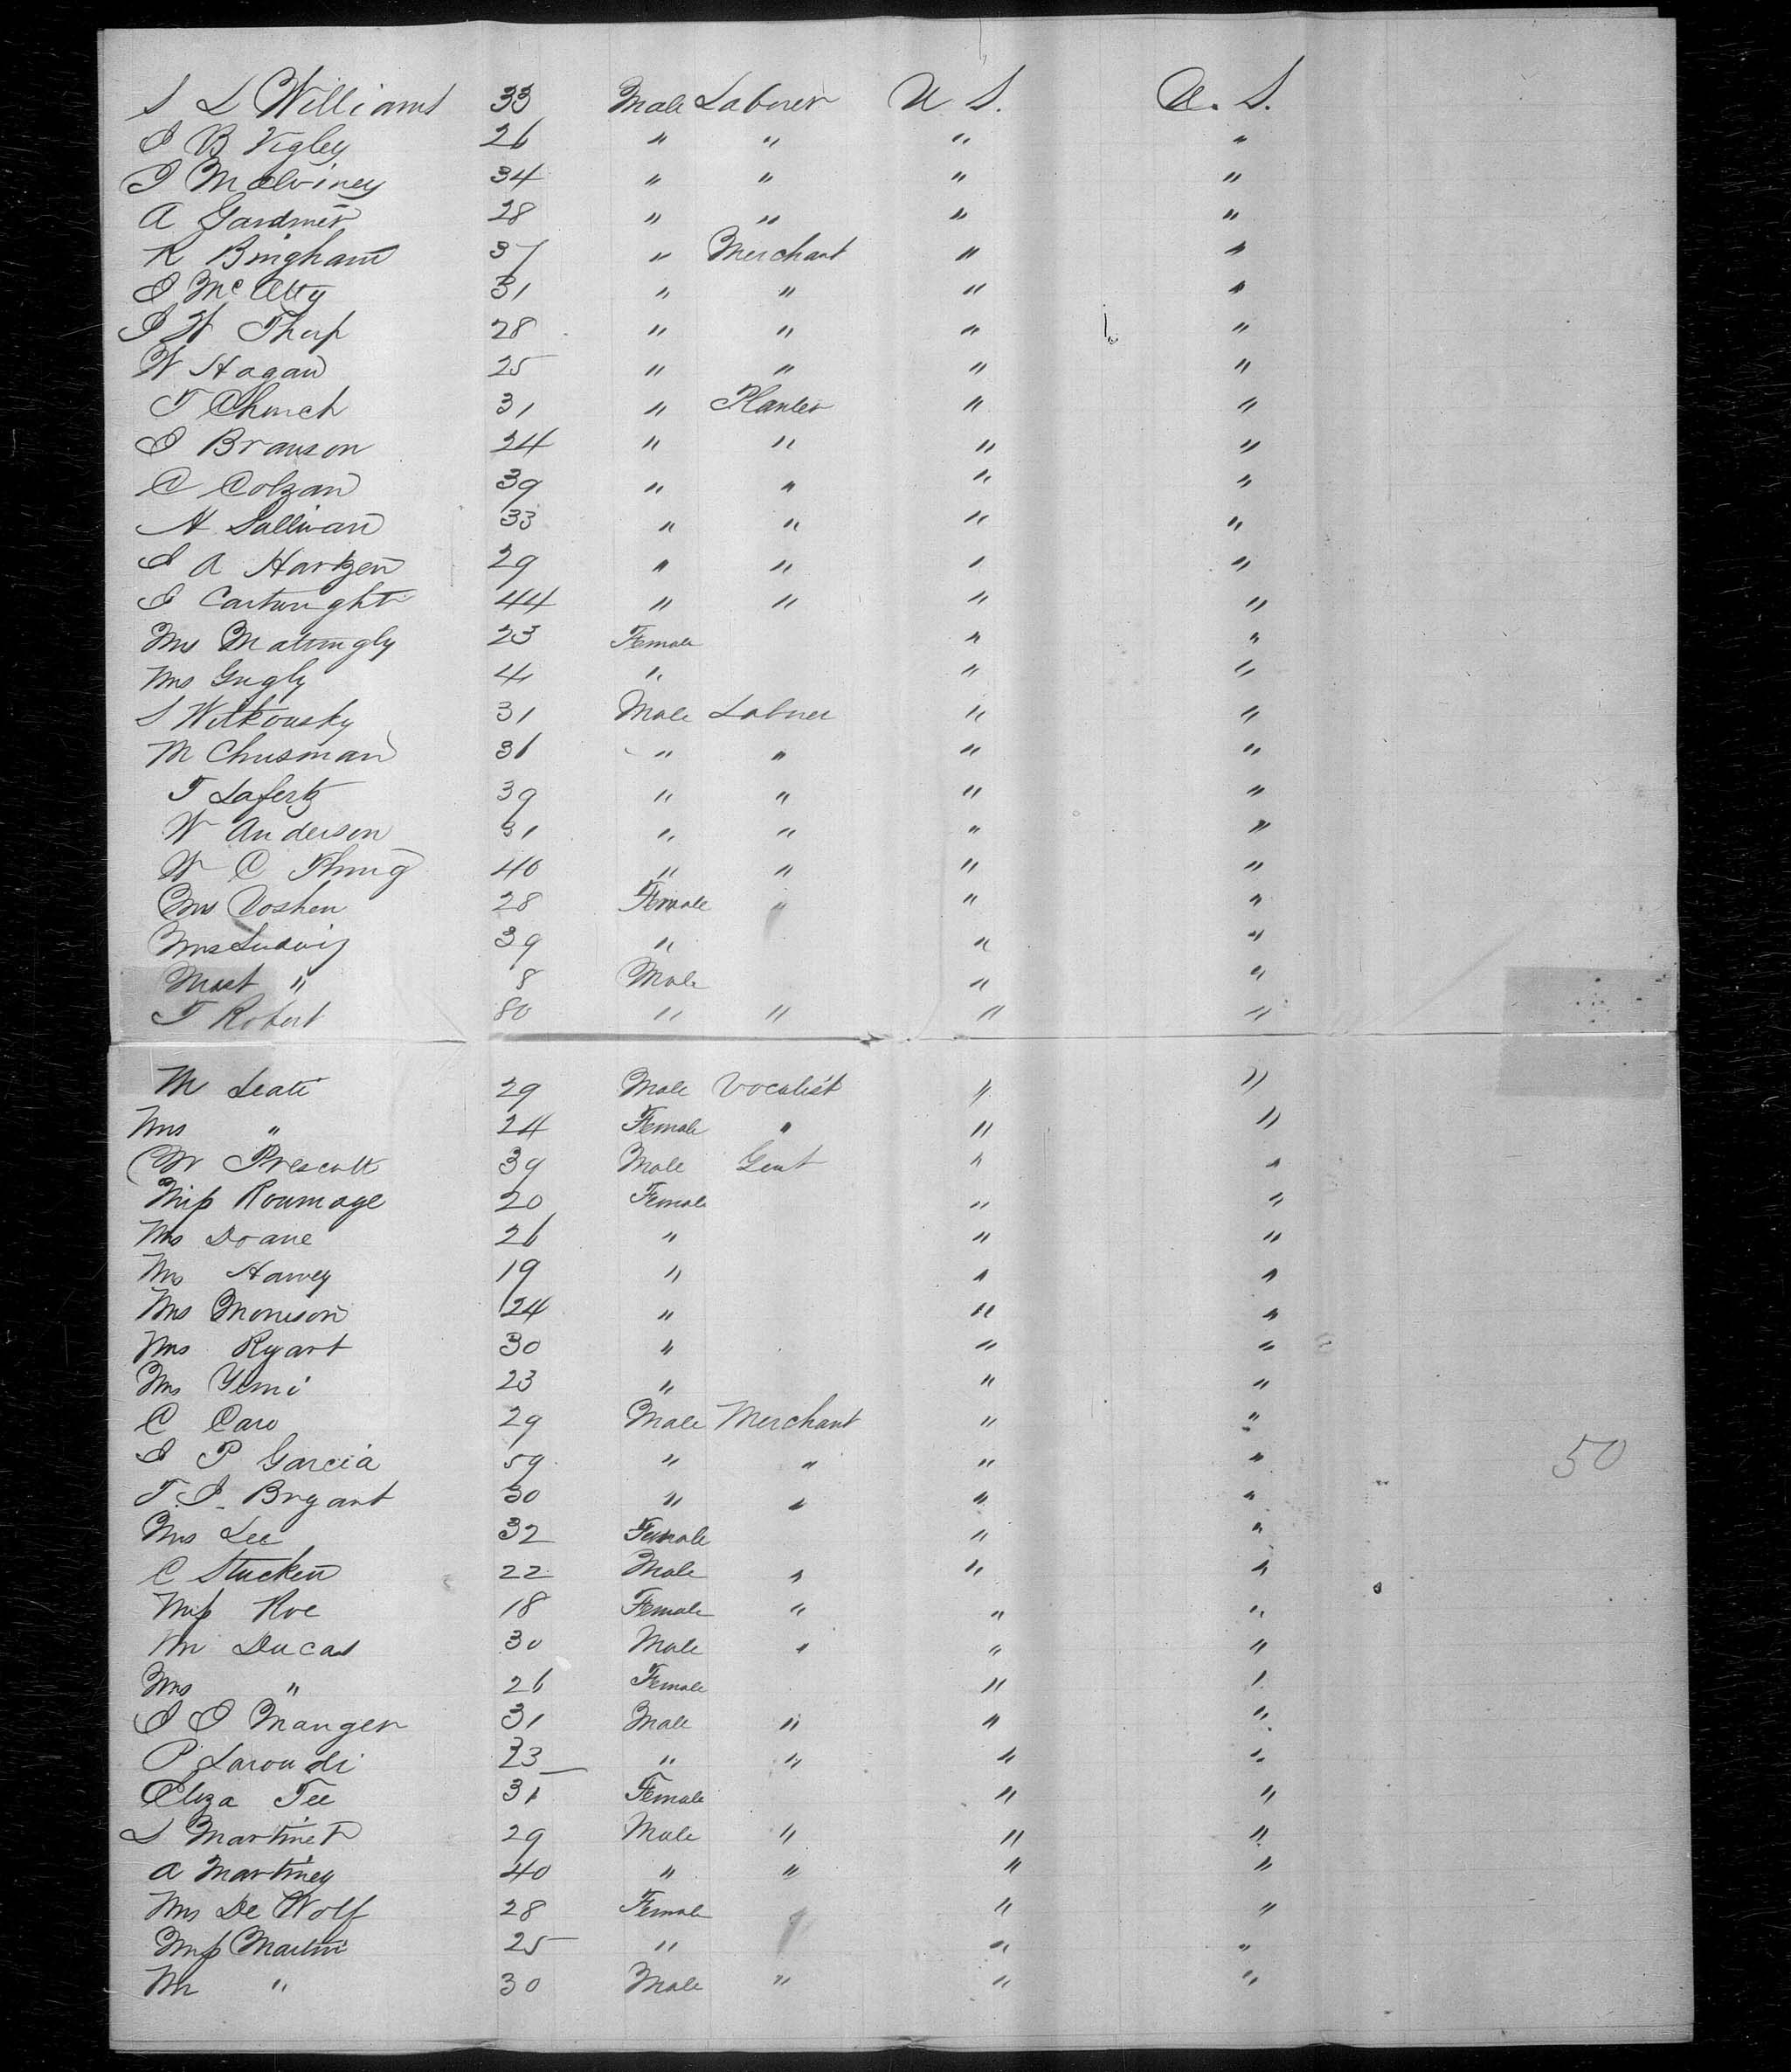 S L Williams 33 Male Laborer U S. U. S.
J B Vigley 26 " " " "
J McElviney 34 " " " "
A Gardner 28 " " " "
R Bingham 37 " Merchant " "
J McAtty 31 " " " "
J W Thorp 28 " " " "
W Hagan 25 " " " "
T Church 31 " Planter " "
J Branson 24 " " " "
C Colzan 39 " " " "
H Sullivan 33 " " " "
J A Hartzen 29 " " " "
J Cartwright 44 " " " "
Mrs Mattingly 23 Female " "
Mrs Gugly 4 " " "
S Witkousky 31 Male Laborer " "
M Chrisman 36 " " " "
T Lafertz 39 " " " "
W Anderson 31 " " " "
W C Thring 40 " " " "
Mrs Voshen 28 Female " " "
Mrs Ludwig 39 " " "
Mast " 8 Male " "
T Robert 80 " " " "
M Leati 29 Male Vocalist " "
Mrs " 24 Female " " "
W Prescott 39 Male Gent " "
Miss Roumage 20 Female " "
Mrs Doane 26 " " "
Mrs Harvey 19 " " "
Mrs Morrison 24 " " "
Mrs Ryart 30 " " "
Mrs Yemi 23 " " "
C Caro 29 Male Merchant " "
J P Garcia 59 " " " "
50
T. J. Bryant 30 " " " "
Mrs Lee 32 Female " "
C Stucken 22 Male " " "
Miss Roe 18 Female " " "
Mr Ducas 30 Male " " "
Mrs " 26 Female " "
J O Manger 31 Male " " "
P Laroudi 23 " " " "
Eliza Tee 31 Female " "
L Martinet 29 Male " " "
A Martiney 40 " " " "
Mrs De Wolf 28 Female " "
Miss Martin 25 " " "
Mr " 30 Male " " "